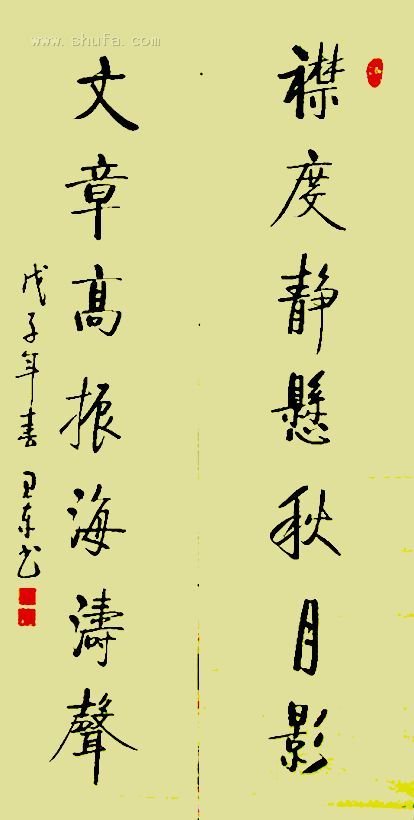 襟度静懸秋月影
文章高振海濤聲
戊子年春卫东书
www.shufa.com